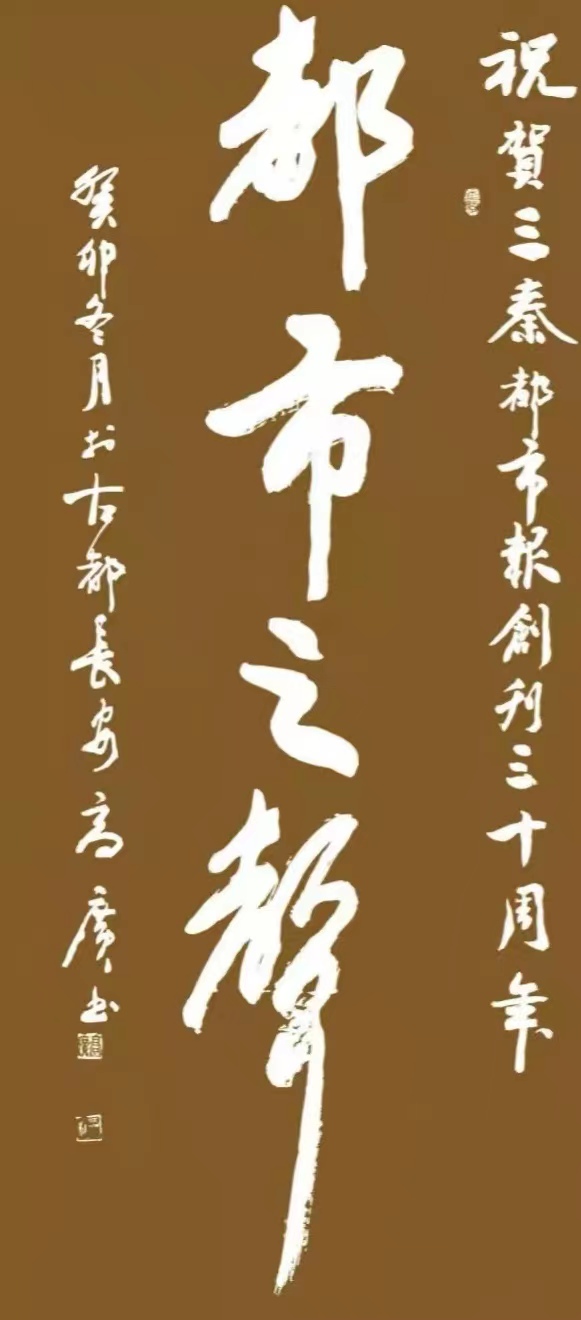 祝賀三秦都市報創刊三十周年
都市之聲
癸卯冬月於古都長安高廣書